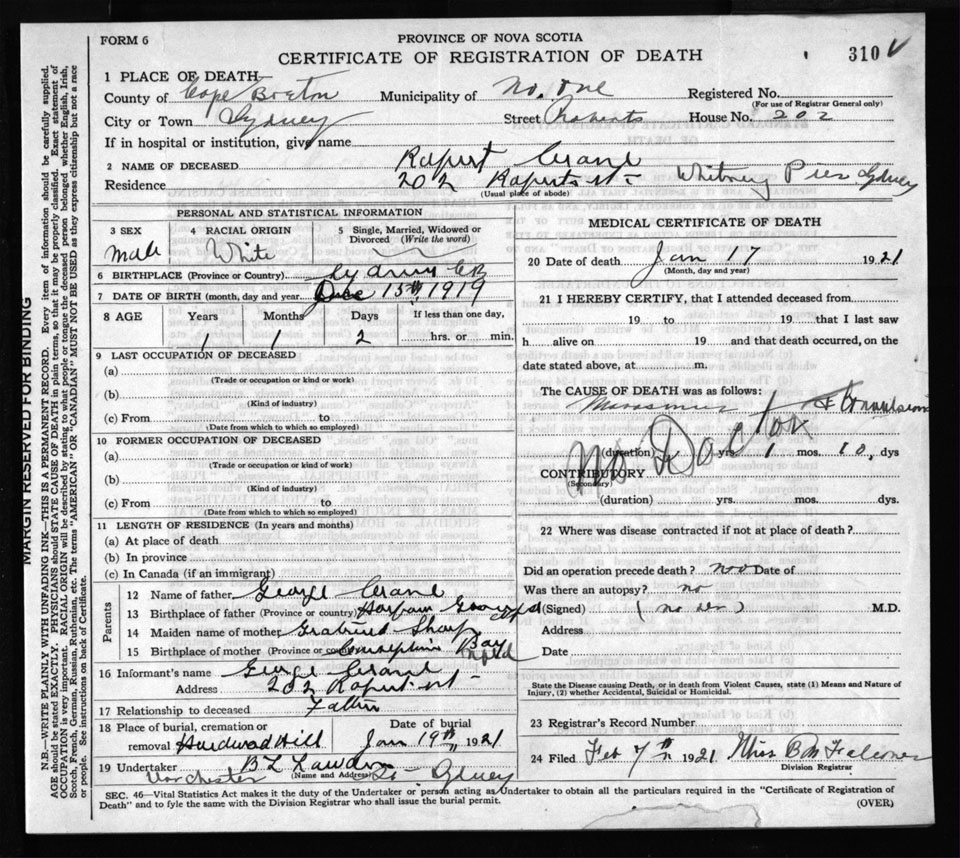 FORM 6
PROVINCE OF NOVA SCOTIA
CERTIFICATE OF REGISTRATION OF DEATH
310
1 PLACE OF DEATH
County of Cape Breton Municipality of No. One Registered No.
(For use of Registrar General only)
City or Town Sydney Street Roberts House No. 202
If in hospital or institution, give name
2 NAME OF DECEASED Rupert Crane
Residence 202 Ruperts St Whitney Pier Sydney
(Usual place of abode)
PERSONAL AND STATISTICAL INFORMATION
3 SEX male
4 RACIAL ORIGIN White
5 Single, Married, Widowed or Divorced (Write the word)
6 BIRTHPLACE (Province or Country) Sydney CB
7 DATE OF BIRTH (month, day and year) Dec 15th 1919
8 AGE Years Months Days If less than one day,
1 1 2 hrs. or min.
9 LAST OCCUPATION OF DECEASED
(a)
(Trade or occupation or kind or work)
(b)
(Kind of industry)
(c) From to
(Date from which to which so employed)
10 FORMER OCCUPATION OF DECEASED
(a)
(Trade or occupation or kind of work)
(b)
(Kind of industry)
(c) From to
(Date from which to which so employed)
11 LENGTH OF RESIDENCE (In years and months)
(a) At place of death
(b) In province
(c) In Canada (if an immigrant)
Parents
12 Name of father George Crane
13 Birthplace of father (Province or country)
14 Maiden name of mother Sharp
15 Birthplace of mother (Province or country) Conception Bay Nfld
16 Informant's name George Crane
Address 202 Rupert st
17 Relationship to deceased Father
18 Place of burial, cremation or removal Hardwood Hill
Date of burial Jan 19th 1921
19 Undertaker
(Name and Address)
Dorchester St Sydney
MEDICAL CERTIFICATE OF DEATH
20 Date of death Jan 17 1921
(Month, day and year)
21 I HEREBY CERTIFY, that I attended deceased from
19 to 19 that I last saw
h alive on 19 and that death occurred, on the
date stated above, at m.
The CAUSE OF DEATH was as follows:
Marasmus & Convulsions
No Doctor
(duration) yrs 1 mos. 10, dys
CONTRIBUTORY
(Secondary)
(duration) yrs. mos. dys.
22 Where was disease contracted if not at place of death?
Did an operation precede death? no Date of
Was there an autopsy? no
(Signed) M.D.
Address
Date
State the Disease causing Death, or in death from Violent Causes, state (1) Means and Nature of Injury, (2) whether Accidental, Suicidal or Homicidal.
23 Registrar's Record Number
24 Filed Feb 7th 1921 Miss B
Division Registrar
SEC. 46—Vital Statistics Act makes it the duty of the Undertaker or person acting as Undertaker to obtain all the particulars required in the "Certificate of Registration of
Death" and to fyle the same with the Division Registrar who shall issue the burial permit.
(OVER)
MARGIN RESERVED FOR BINDING
N.B.—WRITE PLAINLY WITH UNFADING INK—THIS IS A PERMANENT RECORD. Every item of information should be carefully supplied.
AGE should be stated EXACTLY. PHYSICIANS should STATE CAUSE OF DEATH in plain terms, so that it may be properly classified. Exact statement of
OCCUPATION is very important. RACIAL ORIGIN will be described by stating to what people or tongue the deceased person belonged whether English, Irish,
Scotch, French, German, Russian, Ruthenian, etc. The terms "AMERICAN" OR "CANADIAN" MUST NOT BE USED as they express citizenship but not a race
or people. See instructions on back of Certificate.